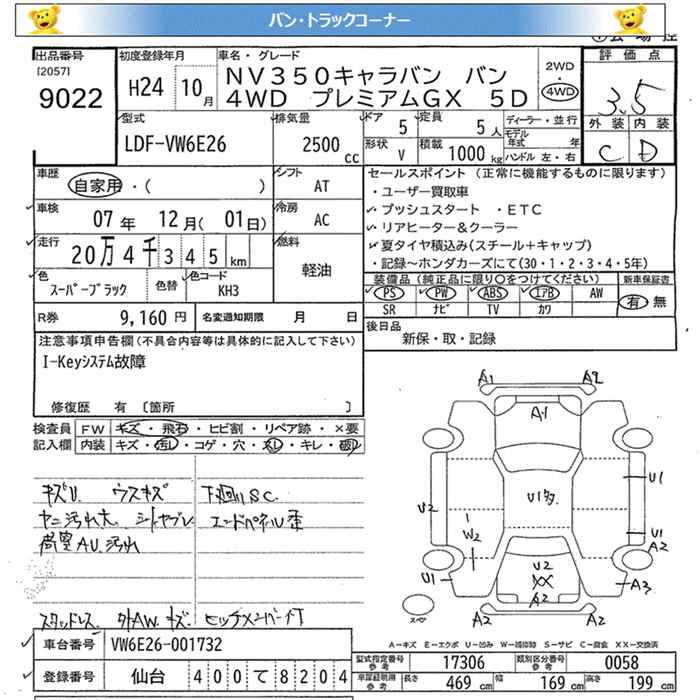 バン・トラックコーナー
出品番号
[2057]
9022
初度登録年月
H24 10月
車名・グレード
NV350キャラバン バン
4WD プレミアムGX 5D
2WD
・
4WD
評価点
3.5
外装 内装
C D
型式
LDF-VW6E26
排気量
2500 cc
ドア 5
定員 5人
形状 V
積載 1000kg
ディーラー・並行
モデル年式 年
ハンドル 左・右
車歴
自家用・( )
シフト
AT
車検
07年 12月(01日)
冷房
AC
走行
20万4千345km
燃料
軽油
色
スーパーブラック
色替
色コード
KH3
セールスポイント (正常に機能するものに限ります)
・ユーザー買取車
・プッシュスタート ・ETC
・リアヒーター&クーラー
・夏タイヤ積込み(スチール+キャップ)
・記録~ホンダカーズにて(30・1・2・3・4・5年)
装備品(純正品に限り○をつけてください)
新車保証書
PS PW ABS エアB AW
SR ナビ TV カワ
有 無
R券 9,160円
名変通知期限 月 日
後日品
新保・取・記録
注意事項申告欄(不具合内容等は具体的に記入して下さい)
I-Keyシステム故障
修復歴 有 〔箇所 〕
検査員記入欄
FW キズ・飛石・ヒビ割・リペア跡・×要
内装 キズ・汚レ・コゲ・穴・スレ・キレ・破レ
キズU. ウスキズ 下廻りSC.
ヤニ汚れ大 シートヤブレ エンドパネル歪
荷室AU.汚れ
スタッドレス 外AW.キズ ヒッチメンバー付
A1 A2
A1
U1多
U2
W2
U1
U1
U1
A2
A3
U2
XX
A2
A2 A2
スペア
A=キズ E=エクボ U=凹み W=補修跡 S=サビ C=腐食 XX=交換済
車台番号 VW6E26-001732
登録番号 仙台 400て8204
型式指定番号 参考 17306
類別区分番号 参考 0058
車屋総明用 参考 長さ 469cm 幅 169cm 高さ 199cm